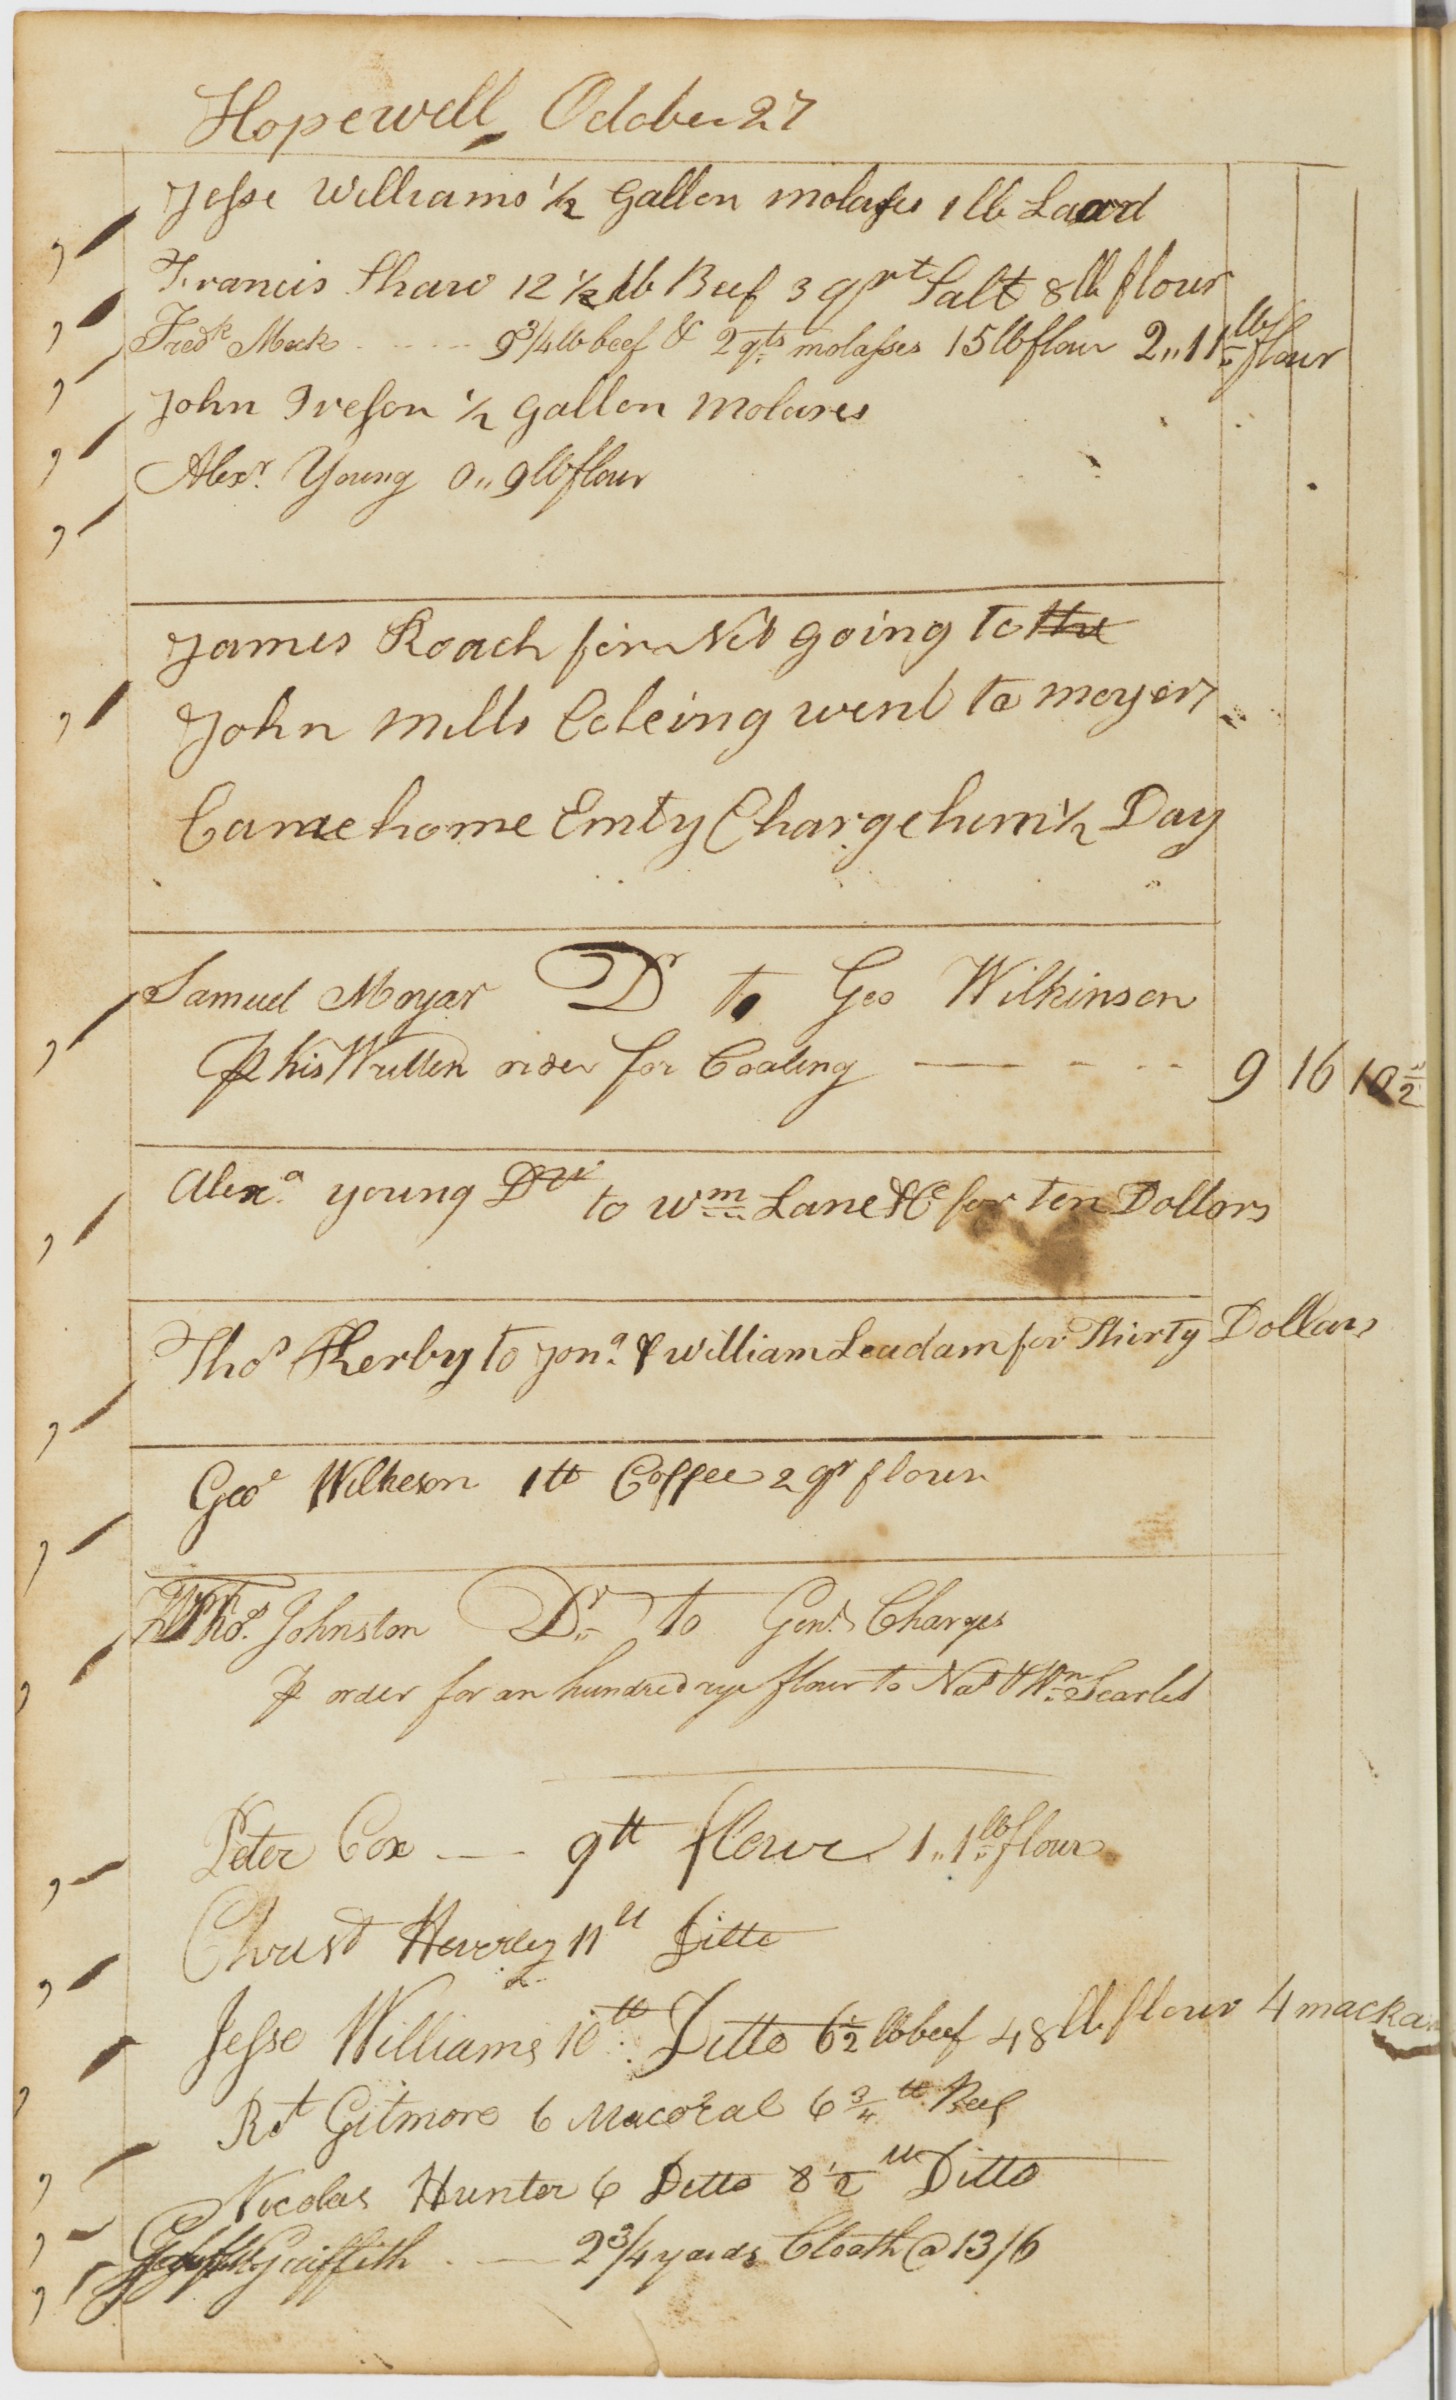 Hopewell October 27
Jesse Williams 1/2 Gallon molases 1 lb Lard
Francis Shaw 12 1/2 lb Beef 3 qrt Salt 8 lb flour
Fredk Meck 9 3/4 lb beef & 2 qts molasses 15 lb flour 2,, 11 lb flour
John Ireson 1/2 Gallon Molares
Alexr Young 0,, 9 lb flour
James Roach for Not going to the
John mills Coleing went to moyers
Came home Emty Charge him 1/2 Day
Samuel Moyar Dr to Geo Wilkinson
P his Written order for Coaling 9 16 10 1/2
Alexa young Dr to Wm Lane & Co for ten Dollars
Thos Kerby to Jona & William Leadam for Thirty Dollars
Geoe Wilkeson 1 lb Coffee 2 qr flour
Thos Johnston Dr to Genl Charges
P order for an hundred rye flour to Nat & Wm Scarlet
Peter Cox 9 lb flour 1,, 1 lb flour
Christ Heverley 11 lb Ditto
Jesse Williams 10 lb Ditto 6 1/2 lb beef 48 lb flour 4 macka
Rt Gilmore 6 Macoral 6 3/4 lb Beef
Nicolas Hunter 6 Ditto 8 1/2 lb Ditto
Griffith 2 3/4 yards Cloath @ 13/6